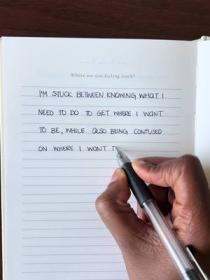 Where are you feeling stuck?
I'M STUCK BETWEEN KNOWING WHAT I
NEED TO DO TO GET WHERE I WANT
TO BE, WHILE ALSO BEING CONFUSED
ON WHERE I WANT T